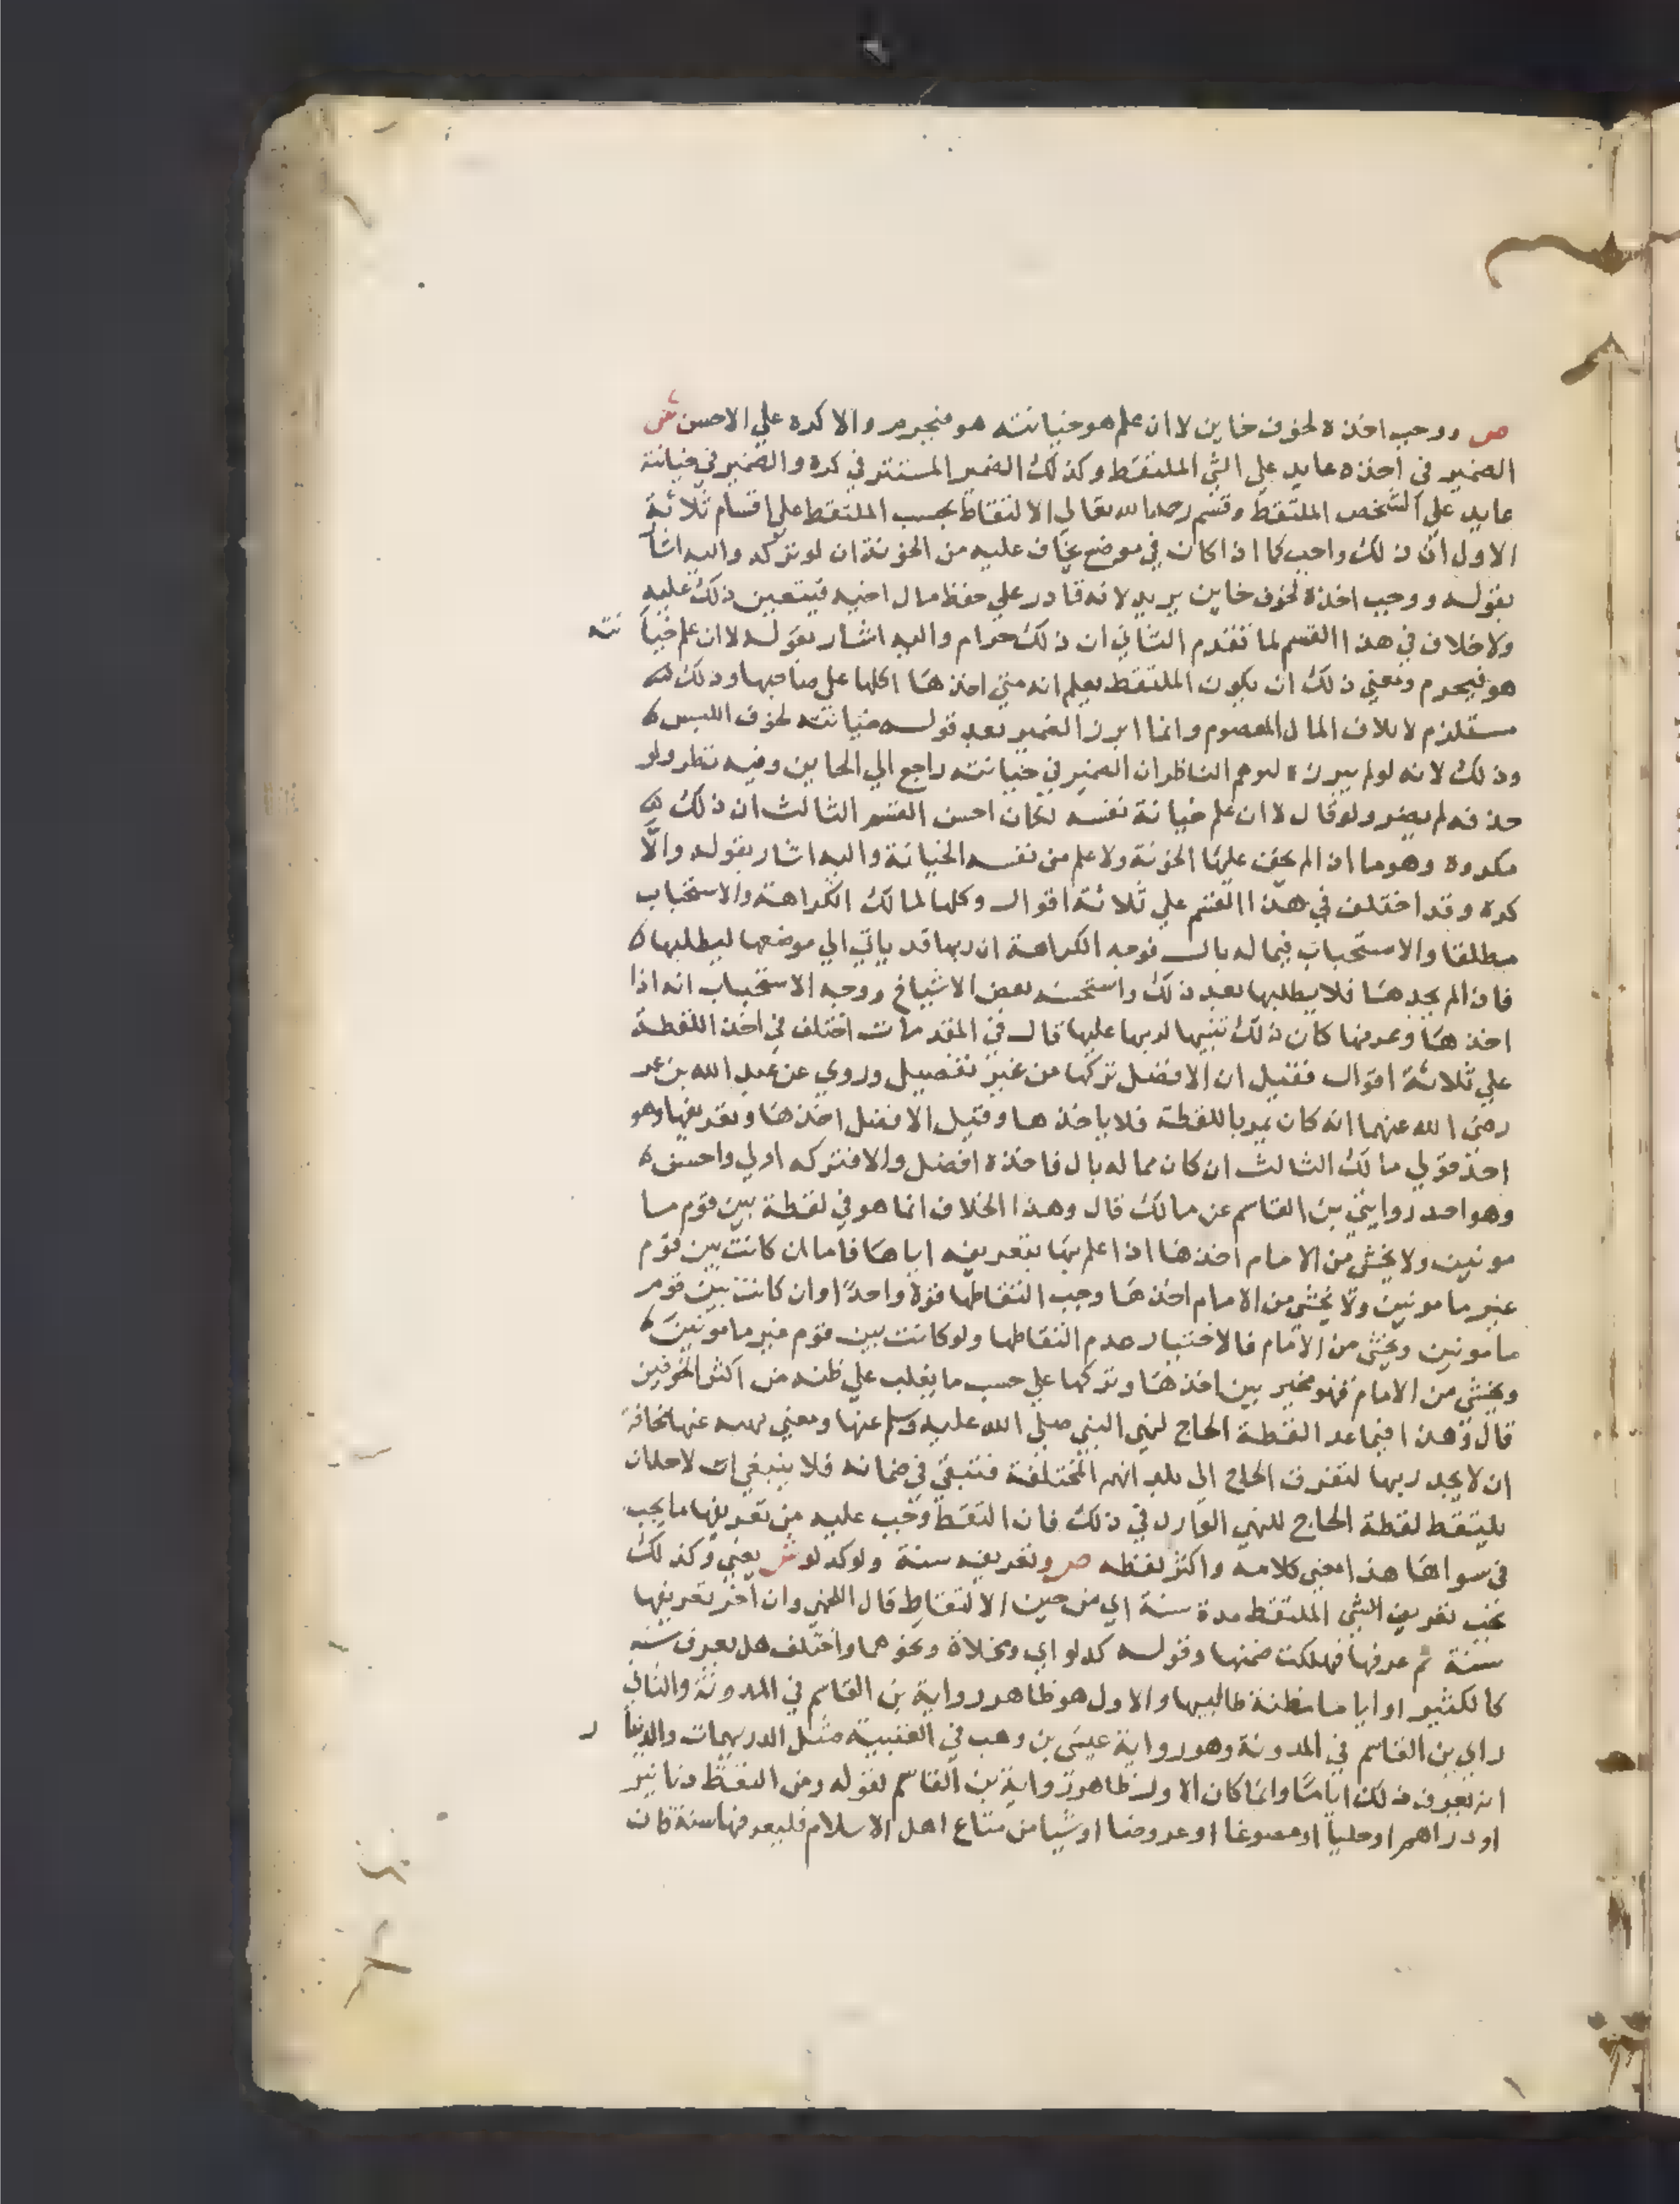 ص ووجب اخذه لخوف خاين لا ان علم هو خيانته هو فيحرم والا كره علي الاحسن ش
الضمير في اخذه عايد علي الشي الملتقط وكذلك الضمير المستتر في كره والضمير في خيانته
عايد علي الشخص الملتقط وقسم رحمه الله تعالي الالتقاط بحسب الملتقط علي اقسام ثلاثة
الاول ان ذلك واجب كما اذا كان في موضع يخاف عليه من الخونة ان لو تركه واليه اشار
بقوله ووجب اخذه لخوف خاين يريد لانه قادر علي حفظ مال اخيه فيتعين ذلك عليه
ولا خلاف في هذا القسم لما تقدم الثاني ان ذلك حرام واليه اشار بقوله لا ان علم خيانته
هو فيحرم ومعني ذلك ان يكون الملتقط يعلم انه متي اخذها اكلها علي صاحبها وذلك
مستلزم لاتلاف المال المعصوم وانما ابرز الضمير بعد قوله خيانته لخوف اللبس
وذلك لانه لو لم يبرزه لتوهم الناظر ان الضمير في خيانته راجع الي الخاين وفيه نظر ولو
حذفه لم يضر ولو قال لا ان علم خيانة نفسه لكان احسن القسم الثالث ان ذلك
مكروه وهو ما اذا لم يخف عليها الخونة ولا علم من نفسه الخيانة واليه اشار بقوله والّا
كره وقد اختلف في هذا القسم علي ثلاثة اقوال وكلها لمالك الكراهة والاستحباب
مطلقا والاستحباب فيما له بال فوجه الكراهة ان ربها قد ياتي الي موضعها ليطلبها
فاذا لم يجدها فلا يطلبها بعد ذلك واستحسنه بعض الاشياخ ووجه الاستحباب انه اذا
اخذها وعرفها كان ذلك تنبيها لربها عليها قال في المقدمات اختلف في اخذ اللقطة
علي ثلاثة اقوال فقيل ان الافضل تركها من غير تفصيل وروي عن عبد الله بن عمر
رضي الله عنهما انه كان يمر باللقطة فلا ياخذها وقيل الافضل اخذها وتعريفها وهو
احد قولي مالك الثالث ان كان مما له بال فاخذه افضل والا فتركه اولي واحسن
وهو احد روايتي بن القاسم عن مالك قال وهذا الخلاف انما هو في لقطة بين قوم ما
مونين ولا يخشي من الامام اخذها اذا علم بها بتعريفه اياها فاما ان كانت بين قوم
غير مامونين ولا يخشي من الامام اخذها وجب التقاطها قولا واحدًا وان كانت بين قوم
مامونين ويخشي من الامام فالاختيار عدم التقاطها ولو كانت بين قوم غير مامونين
ويخشي من الامام فهو مخير بين اخذها وتركها علي حسب ما يغلب علي ظنه من اكثر الخوفين
قال وهذا فيما عدا لقطة الحاج لنهي النبي صلي الله عليه وسلم عنها ومعني نهيه عنها مخافة
ان لا يجد ربها لتفرق الحاج الي بلدانهم المختلفة فتبقي في ضمانه فلا ينبغي لاحد ان
يلتقط لقطة الحاج للنهي الوارد في ذلك فان التقط وجب عليه من تعريفها ما يجب
في سواها هذا معني كلامه واكثر لفظه ص وتعريفه سنة ولو كدلو ش يعني وكذلك
يجب تعريف الشي الملتقط مدة سنة اي من حين الالتقاط قال اللخمي وان اخر تعريفها
سنة ثم عرفها فهلكت ضمنها وقوله كدلو اي ومخلاة ونحوهما واختلف هل يعرف سنة
كالكثير او اياما مظنة طالبها والاول هو ظاهر رواية بن القاسم في المدونة والثاني
راي بن القاسم في المدونة وهو رواية عيسي بن وهب في العتبية مثل الدريهمات والدينار
انه يعرف ذلك اياما وانما كان الاول ظاهر رواية بن القاسم لقوله ومن التقط دنانير
او دراهم او حليا او مصوغا او عروضا او شيا من متاع اهل الاسلام فليعرفها سنة فان